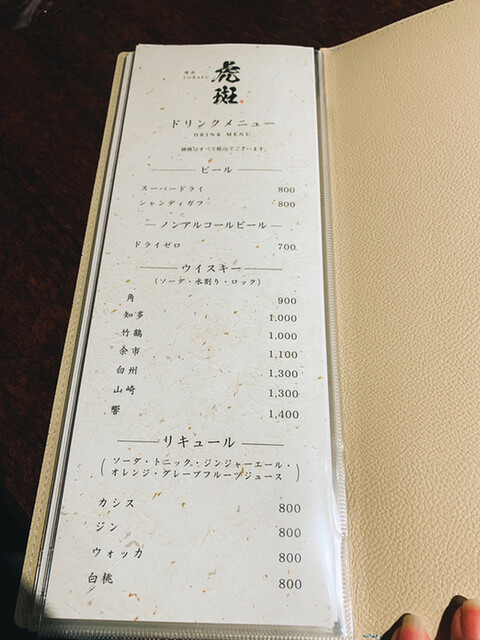 虎斑
TORAFU
ドリンクメニュー
DRINK MENU
価格はすべて税込でございます。
ビール
スーパードライ 800
シャンディガフ 800
ノンアルコールビール
ドライゼロ 700
ウイスキー
(ソーダ・水割り・ロック)
角 900
知多 1,000
竹鶴 1,000
余市 1,100
白州 1,300
山崎 1,300
響 1,400
リキュール
(ソーダ・トニック・ジンジャーエール・
オレンジ・グレープフルーツジュース)
カシス 800
ジン 800
ウォッカ 800
白桃 800